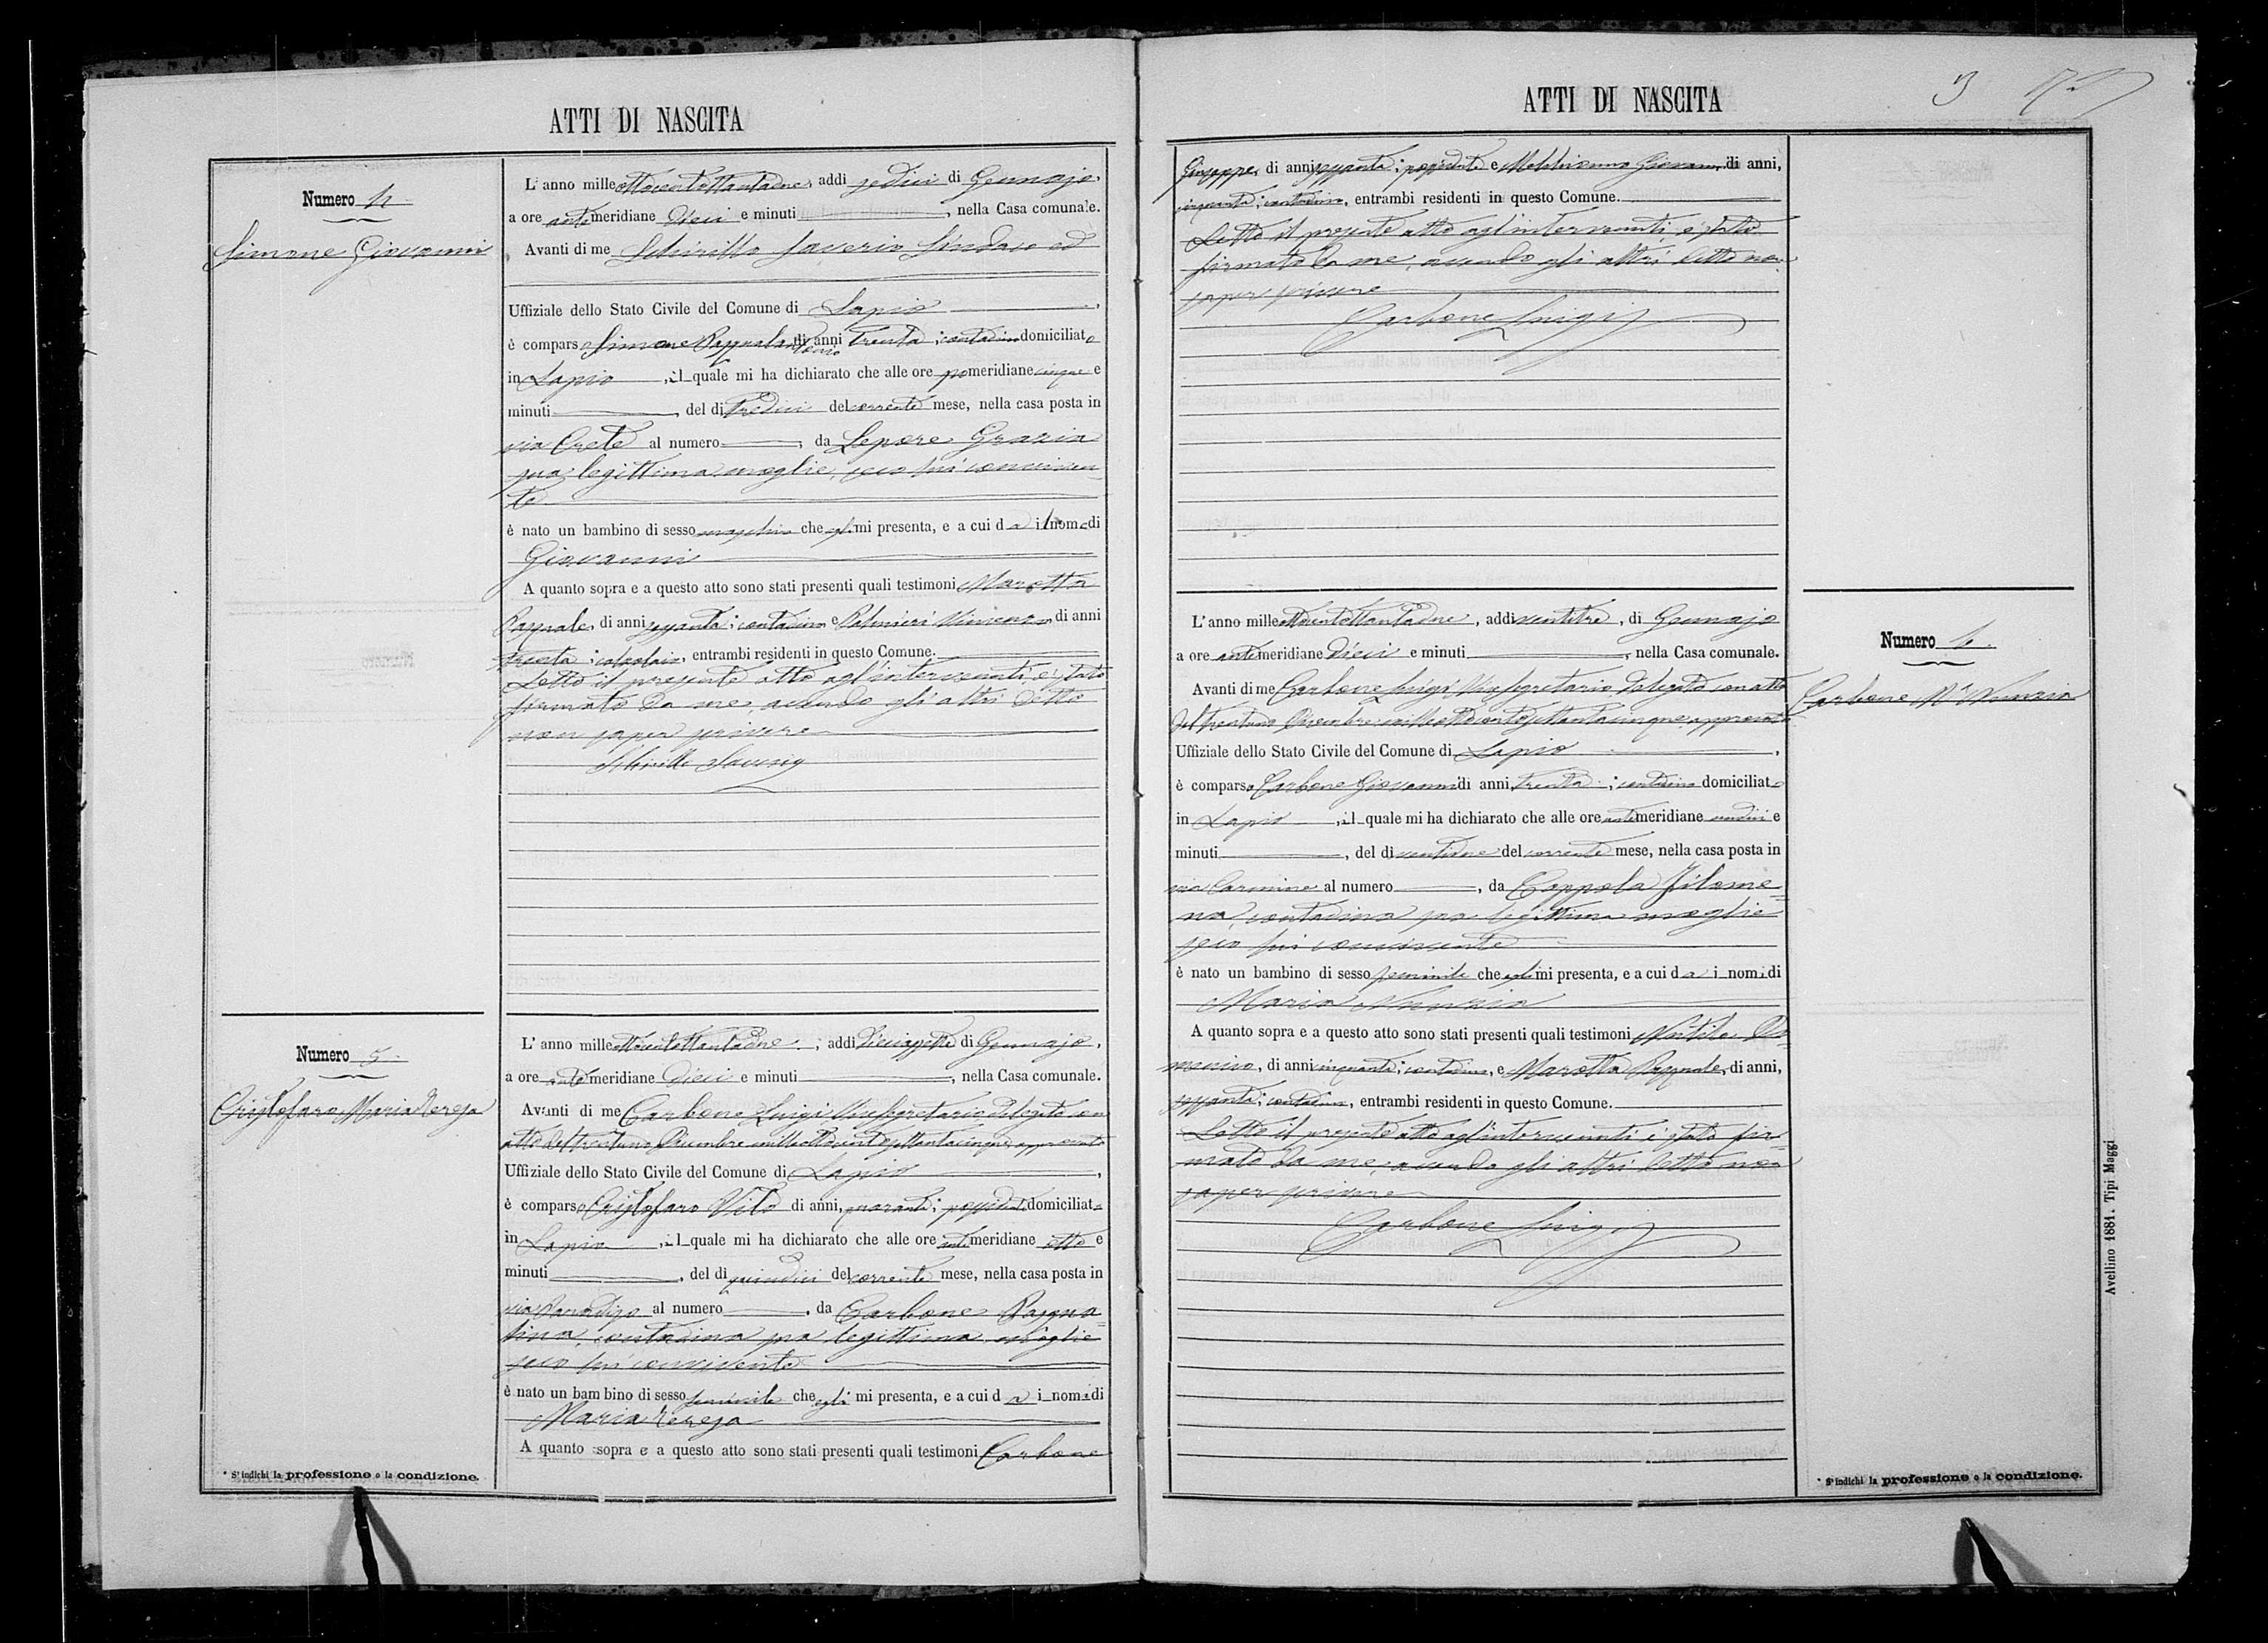 ATTI DI NASCITA
Numero 4
Simone Giovanni
L'anno milleottocentottantadue, addi sedici di Gennajo,
a ore antimeridiane dieci e minuti, nella Casa comunale.
Avanti di me Schirillo Saverio Sindaco ed
Uffiziale dello Stato Civile del Comune di Lapio,
è comparso Simone Pasqualantonio di anni trenta; contadino domiciliato
in Lapio, il quale mi ha dichiarato che alle ore pomeridiane cinque e
minuti, del di tredici del corrente mese, nella casa posta in
via Crete al numero, da Lepore Grazia
sua legittima moglie, seco lui conviven-
te
è nato un bambino di sesso maschino che egli mi presenta, e a cui da il nome di
Giovanni
A quanto sopra e a questo atto sono stati presenti quali testimoni Marotta
Pasquale, di anni sessanta; contadino e Palmieri Vincenzo, di anni
trenta; calzolaio, entrambi residenti in questo Comune.
Letto il presente atto agl'intervenuti, è stato
firmato da me, avendo gli altri detto
non saper scrivere
Schirillo Saverio
Numero 5
Cristofaro Maria Teresa
L'anno milleottocentottantadue, addi diciassette di Gennajo,
a ore antimeridiane dieci e minuti, nella Casa comunale.
Avanti di me Carbone Luigi Vicesegretario delegato con
atto del trentuno Dicembre milleottocentosettantacinque, approvato
Uffiziale dello Stato Civile del Comune di Lapio,
è comparso Cristofaro Vito di anni, quaranta; possidente domiciliato
in Lapio, il quale mi ha dichiarato che alle ore antimeridiane otto e
minuti, del di quindici del corrente mese, nella casa posta in
via Paradiso al numero, da Carbone Pasqua-
lina, contadina sua legittima moglie
seco lui convivente
è nato un bambino di sesso feminile che egli mi presenta, e a cui da i nomi di
Maria Teresa
A quanto sopra e a questo atto sono stati presenti quali testimoni Carbone
* S'indichi la professione o la condizione.
ATTI DI NASCITA
3
Giuseppe, di anni sessanta; possidente e Giovanni, di anni,
cinquanta; contadino, entrambi residenti in questo Comune.
Letto il presente atto agl'intervenuti, è stato
firmato da me, avendo gli altri detto non
saper scrivere
Carbone Luigi
L'anno milleottocentottantadue, addi ventitre, di Gennajo
a ore antimeridiane dieci e minuti, nella Casa comunale.
Avanti di me Carbone Luigi Vicesegretario delegato con atto
del trentuno Dicembre milleottocentosettantacinque, approvato
Uffiziale dello Stato Civile del Comune di Lapio,
è comparso Carbone Giovanni di anni, trenta; contadino domiciliato
in Lapio, il quale mi ha dichiarato che alle ore antimeridiane undici e
minuti, del di ventidue del corrente mese, nella casa posta in
via Carmine al numero, da Coppola Filome-
na, contadina sua legittima moglie
seco lui convivente
è nato un bambino di sesso feminile che egli mi presenta, e a cui da i nomi di
Maria Nunzia
A quanto sopra e a questo atto sono stati presenti quali testimoni Do-
menico, di anni cinquanta; contadino, e Marotta Pasquale, di anni,
sessanta; contadino, entrambi residenti in questo Comune.
Letto il presente atto agl'intervenuti è stato fir-
mato da me, avendo gli altri detto non
saper scrivere
Carbone Luigi
Numero 6.
Carbone Ma Nunzia
* S'indichi la professione o la condizione.
Avellino 1881. Tipi Maggi